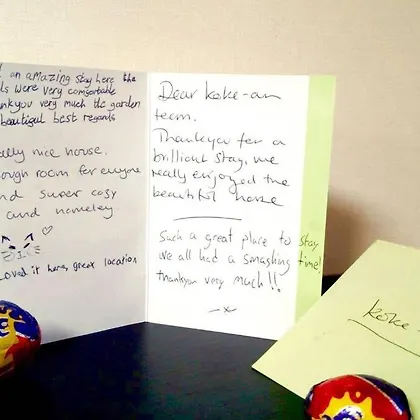 an amazing stay here the
ds were very comfortable
nkyou very much the garden
beautiful best regards
ally nice house,
ough room for everyone
nd super cozy
and homeley
Loved it here, great location
Dear koke-an
team.
Thankyou for a
brilliant stay, we
really enjoyed the
beautiful house
Such a great place to stay
we all had a smashing time!
thankyou very much!!
-x-
koke